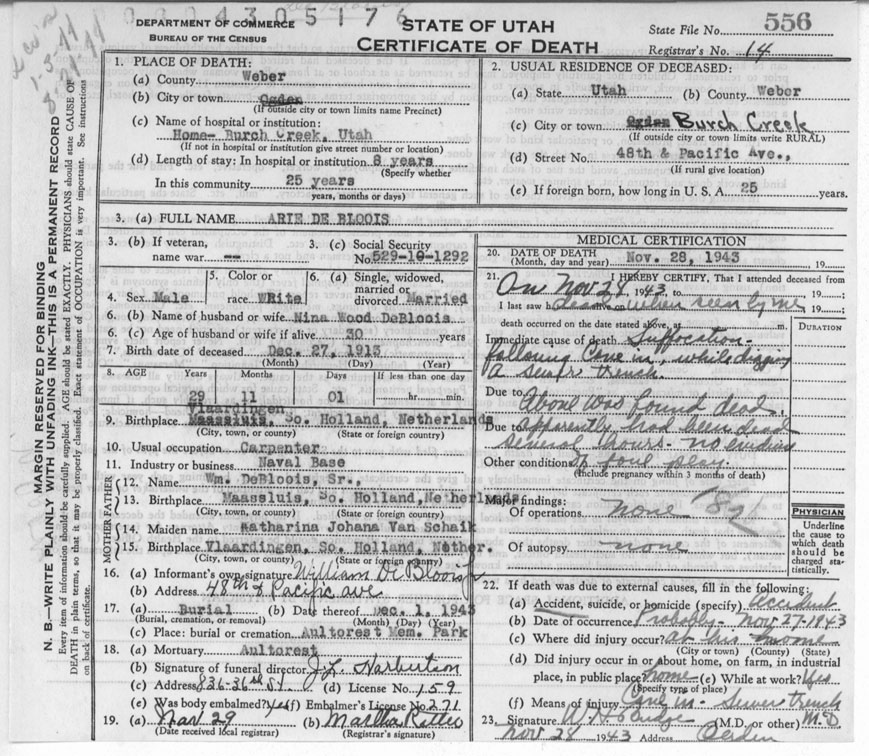 0 0 0 4 3 0 5 1 7 6
DEPARTMENT OF COMMERCE
BUREAU OF THE CENSUS
STATE OF UTAH
CERTIFICATE OF DEATH
State File No. 556
Registrar's No. 14
MARGIN RESERVED FOR BINDING
N. B.—WRITE PLAINLY WITH UNFADING INK—THIS IS A PERMANENT RECORD
Every item of information should be carefully supplied. AGE should be stated EXACTLY. PHYSICIANS should state CAUSE OF
DEATH in plain terms, so that it may be properly classified. Exact statement of OCCUPATION is very important. See instructions
on back of certificate.
1. PLACE OF DEATH:
(a) County Weber
(b) City or town Ogden
(If outside city or town limits name Precinct)
(c) Name of hospital or institution:
Home- Burch Creek, Utah
(If not in hospital or institution give street number or location)
(d) Length of stay: In hospital or institution 8 years
(Specify whether
In this community 25 years
years, months or days)
2. USUAL RESIDENCE OF DECEASED:
(a) State Utah (b) County Weber
(c) City or town Ogden Burch Creek
(If outside city or town limits write RURAL)
(d) Street No. 48th & Pacific Ave.,
(If rural give location)
(e) If foreign born, how long in U. S. A. 25 years.
3. (a) FULL NAME ARIE DE BLOOIS
3. (b) If veteran, name war --
3. (c) Social Security No. 529-10-1292
4. Sex Male
5. Color or race White
6. (a) Single, widowed, married or divorced Married
6. (b) Name of husband or wife Nina Wood DeBloois
6. (c) Age of husband or wife if alive 30 years
7. Birth date of deceased Dec. 27, 1913
(Month) (Day) (Year)
8. AGE Years Months Days If less than one day
29 11 01 hr. min.
Vlaardingen
9. Birthplace Maassluis, So. Holland, Netherlands
(City, town, or county) (State or foreign country)
10. Usual occupation Carpenter
11. Industry or business Naval Base
FATHER
12. Name Wm. DeBloois, Sr.,
13. Birthplace Maassluis, So. Holland, Netherlands
(City, town, or county) (State or foreign country)
MOTHER
14. Maiden name Katharina Johana Van Schaik
15. Birthplace Vlaardingen, So. Holland, Nether.
(City, town, or county) (State or foreign country)
16. (a) Informant's own signature William De Bloois Jr
(b) Address 48th & Pacific ave
17. (a) Burial (b) Date thereof Dec. 1, 1943
(Burial, cremation, or removal) (Month) (Day) (Year)
(c) Place: burial or cremation Aultorest Mem. Park
18. (a) Mortuary Aultorest
(b) Signature of funeral director J. L. Harbertson
(c) Address 836-36th St. (d) License No. 159
(e) Was body embalmed? yes (f) Embalmer's License No. 271
19. (a) Nov 29 (b) Martha
(Date received local registrar) (Registrar's signature)
MEDICAL CERTIFICATION
20. DATE OF DEATH Nov. 28, 1943 19
(Month, day and year)
21. I HEREBY CERTIFY, That I attended deceased from
On Nov 28, 1943, to 19 ;
I last saw h dead on when seen by me 19 ;
death occurred on the date stated above, at m.
DURATION
Immediate cause of death Suffocation-
following Cave in, while digging
a sewer trench.
Due to Above was found dead.
Due to apparently had been dead
several hours - no evidence
Other conditions of foul play.
(Include pregnancy within 3 months of death)
Major findings:
Of operations none
Of autopsy none
PHYSICIAN
Underline
the cause to
which death
should be
charged sta-
tistically.
22. If death was due to external causes, fill in the following:
(a) Accident, suicide, or homicide (specify) accident
(b) Date of occurrence Probably - Nov-27-1943
(c) Where did injury occur? at his home
(City or town) (County) (State)
(d) Did injury occur in or about home, on farm, in industrial
place, in public place? home (e) While at work? Yes
(Specify type of place)
(f) Means of injury Cave in - Sewer trench
23. Signature (M.D. or other) M.D
Nov 28 1943 Address